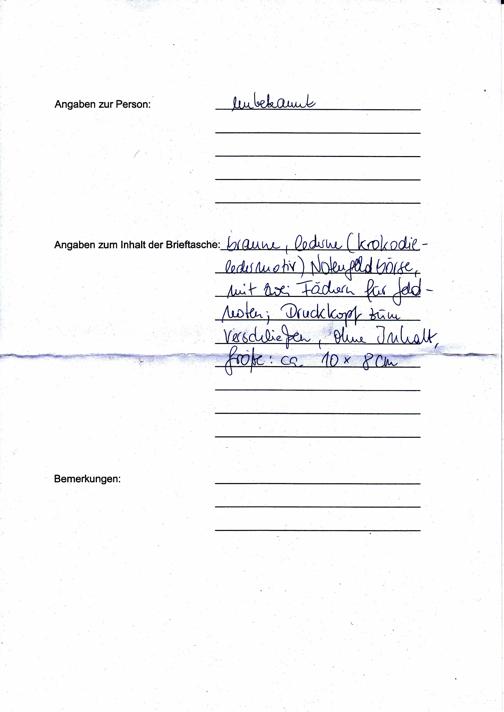 Angaben zur Person: unbekannt
Angaben zum Inhalt der Brieftasche: braune, lederne (Krokodil-
ledermotiv) Notengeldbörse,
mit zwei Fächern für Geld-
noten; Druckkopf zum
Verschließen, ohne Inhalt,
Größe: ca. 10 x 8 cm
Bemerkungen: